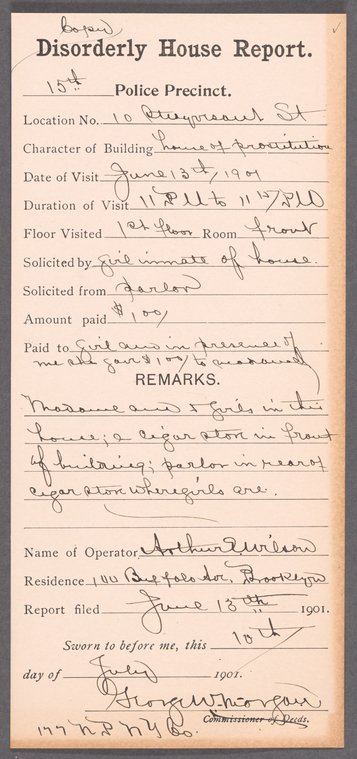 Copy
Disorderly House Report.
15th Police Precinct.
Location No. 10 Stuyvesant St
Character of Building house of prostitution
Date of Visit June 13th/1901
Duration of Visit 11 PM to 11 15/PM
Floor Visited 1st floor Room front
Solicited by girl inmate of house.
Solicited from parlor
Amount paid $1.00/
Paid to girl and in presence of
me she gave $1.00/ to madame
REMARKS.
Madame and 5 girls in this
house; a cigar store in front
of building; parlor in rear of
cigar store where girls are.
Name of Operator Arthur E Wilson
Residence 140 Buffalo Av. Brooklyn
Report filed June 15th 1901.
Sworn to before me, this 10th/
day of July 1901.
George W. Morgan
Commissioner of Deeds.
177 N.P. N.Y. Co.